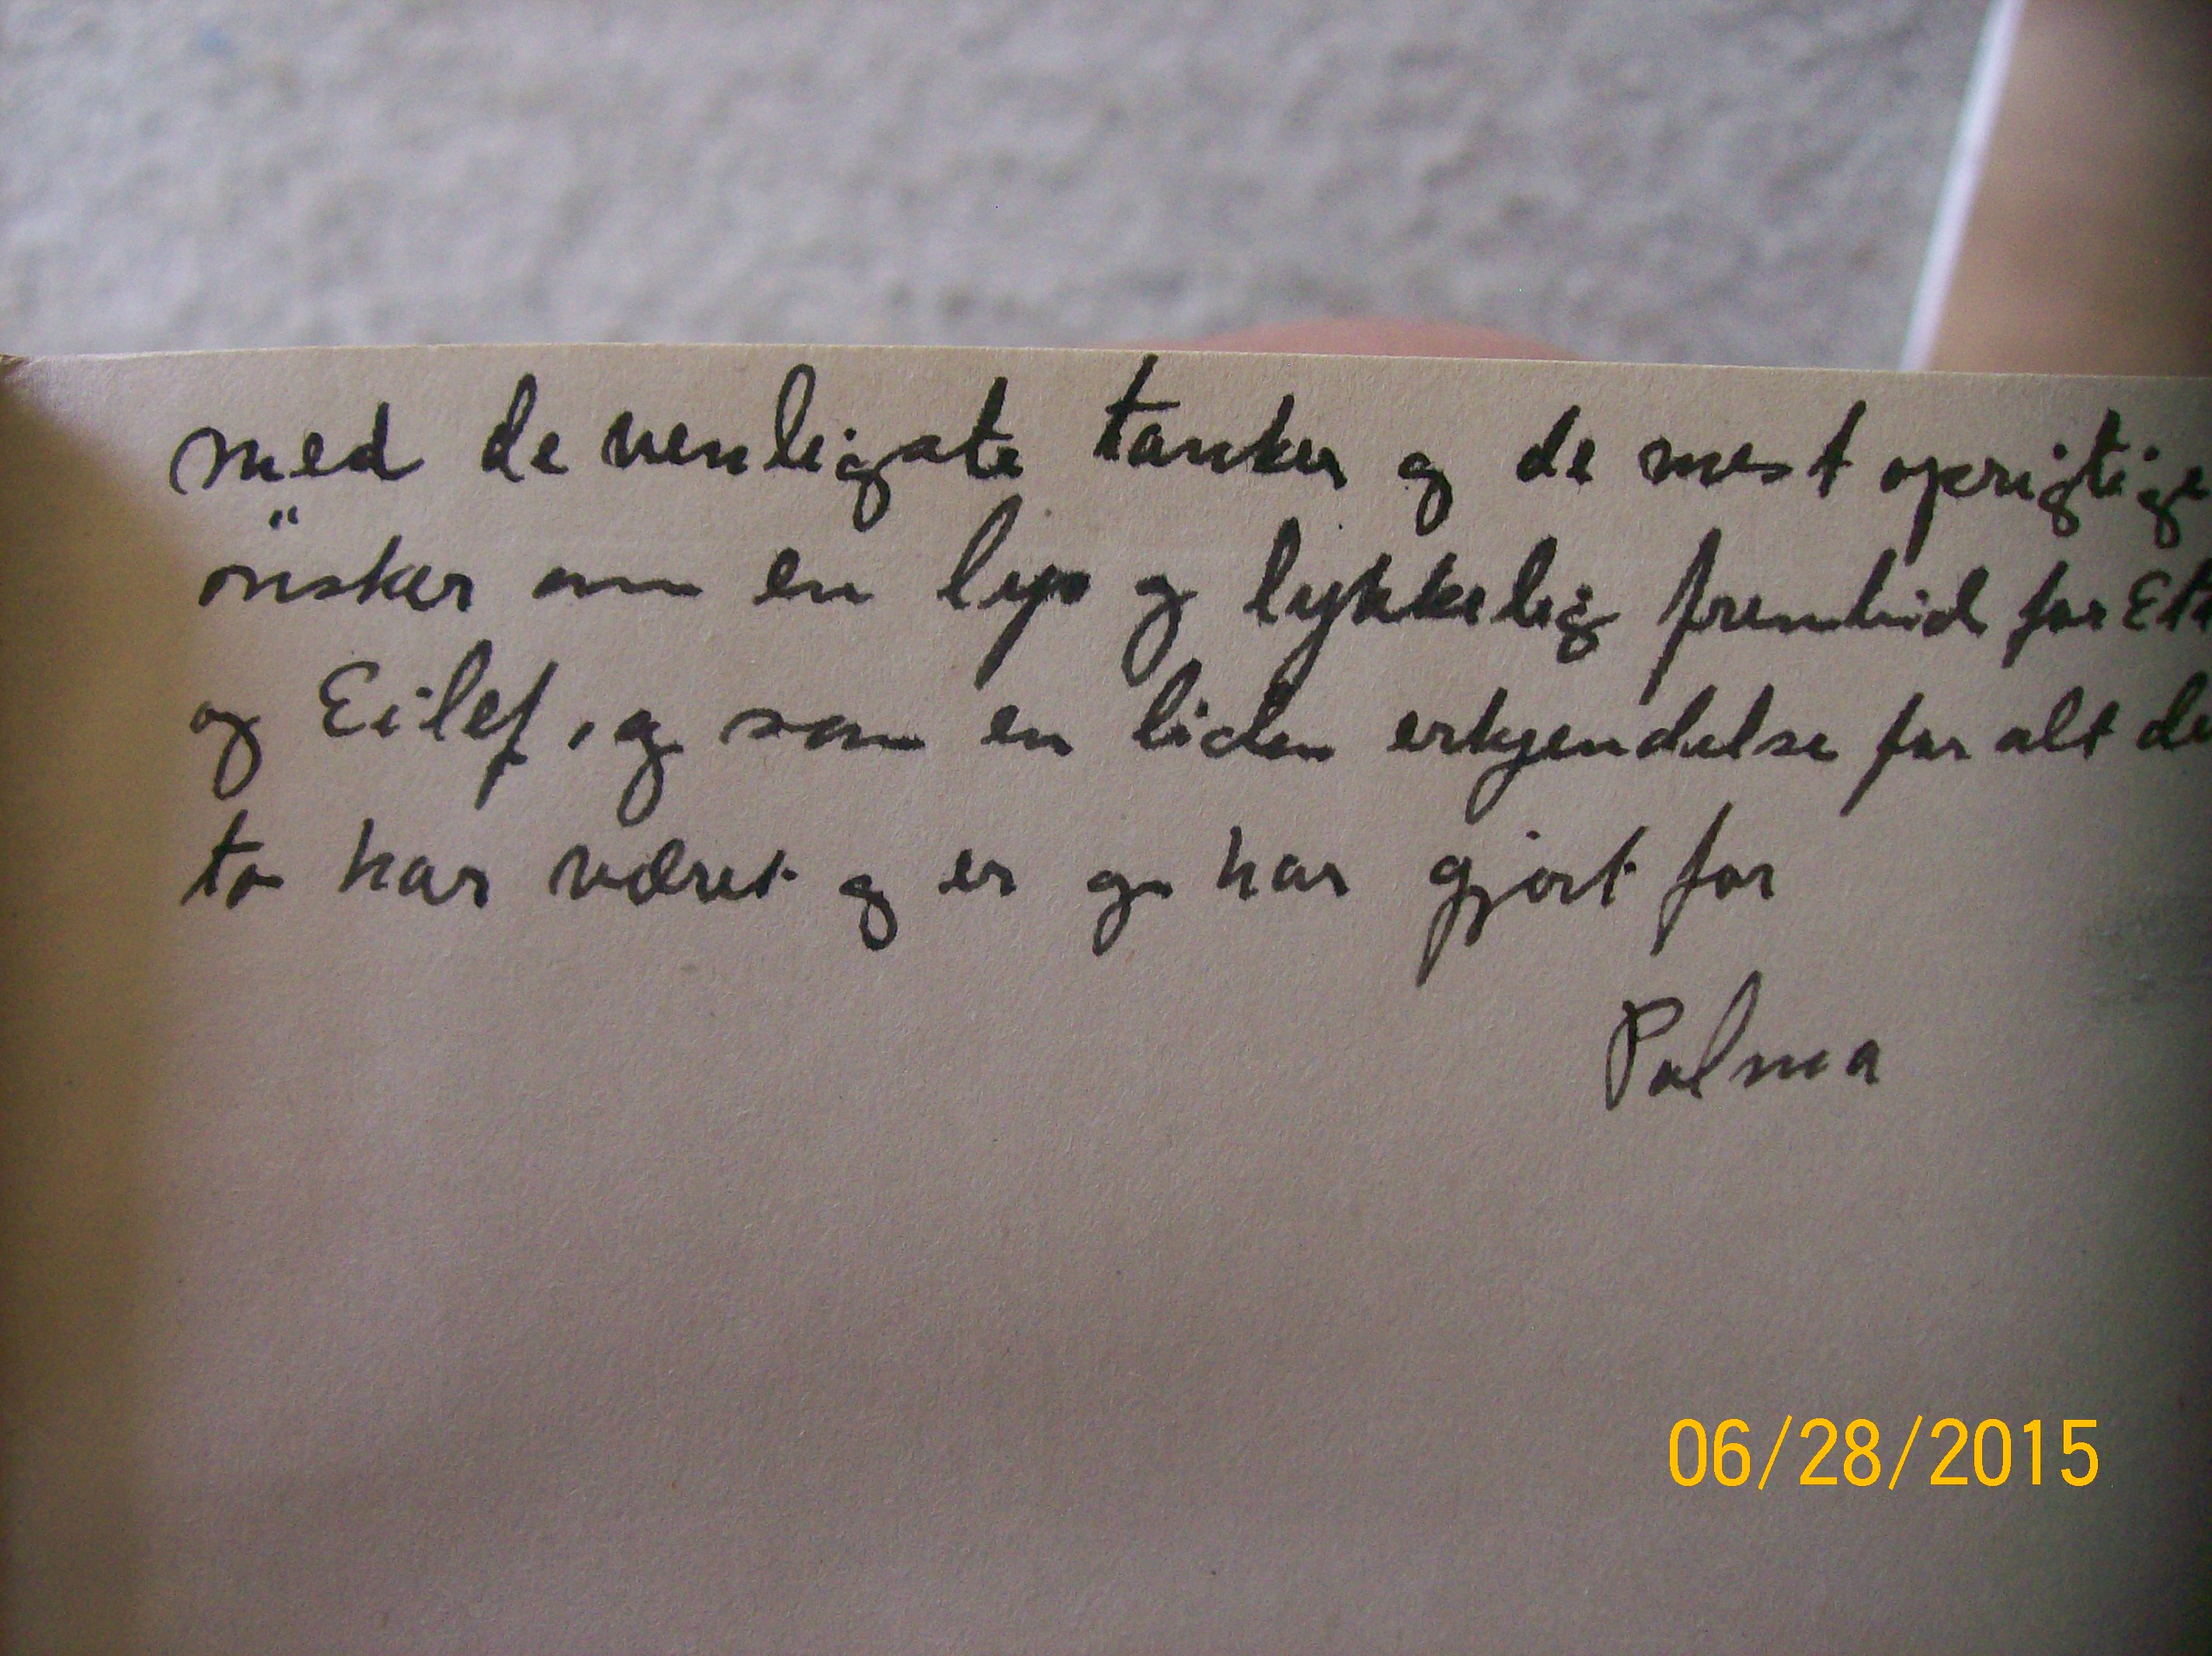 med de venligste tanker og de mest oprigtige
önsker om en lys og lykkelig fremtid for
og Eilef, og som en liden erkjendelse for alt de
to har været og er og har gjort for
Palma
06/28/2015